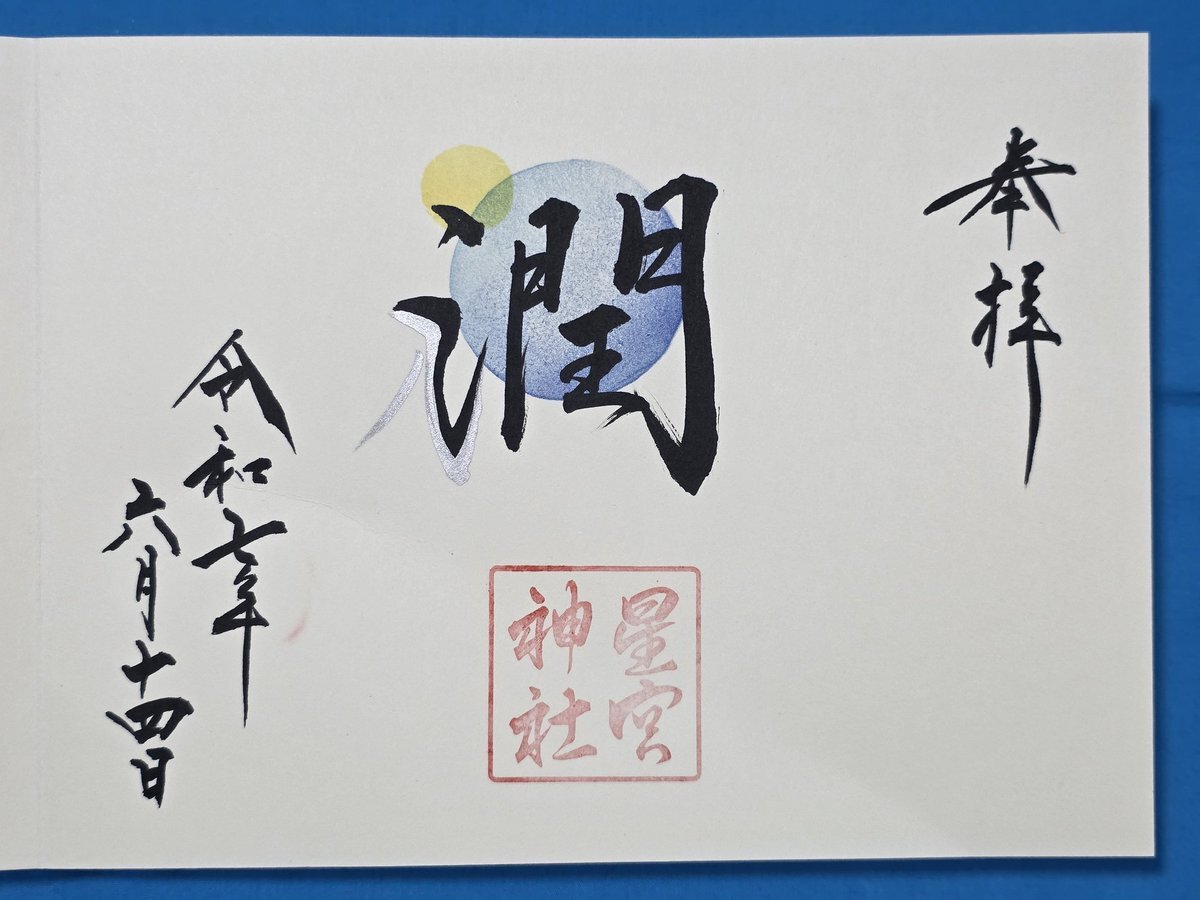 奉拝
潤
星宮
神社
令和七年
六月十四日